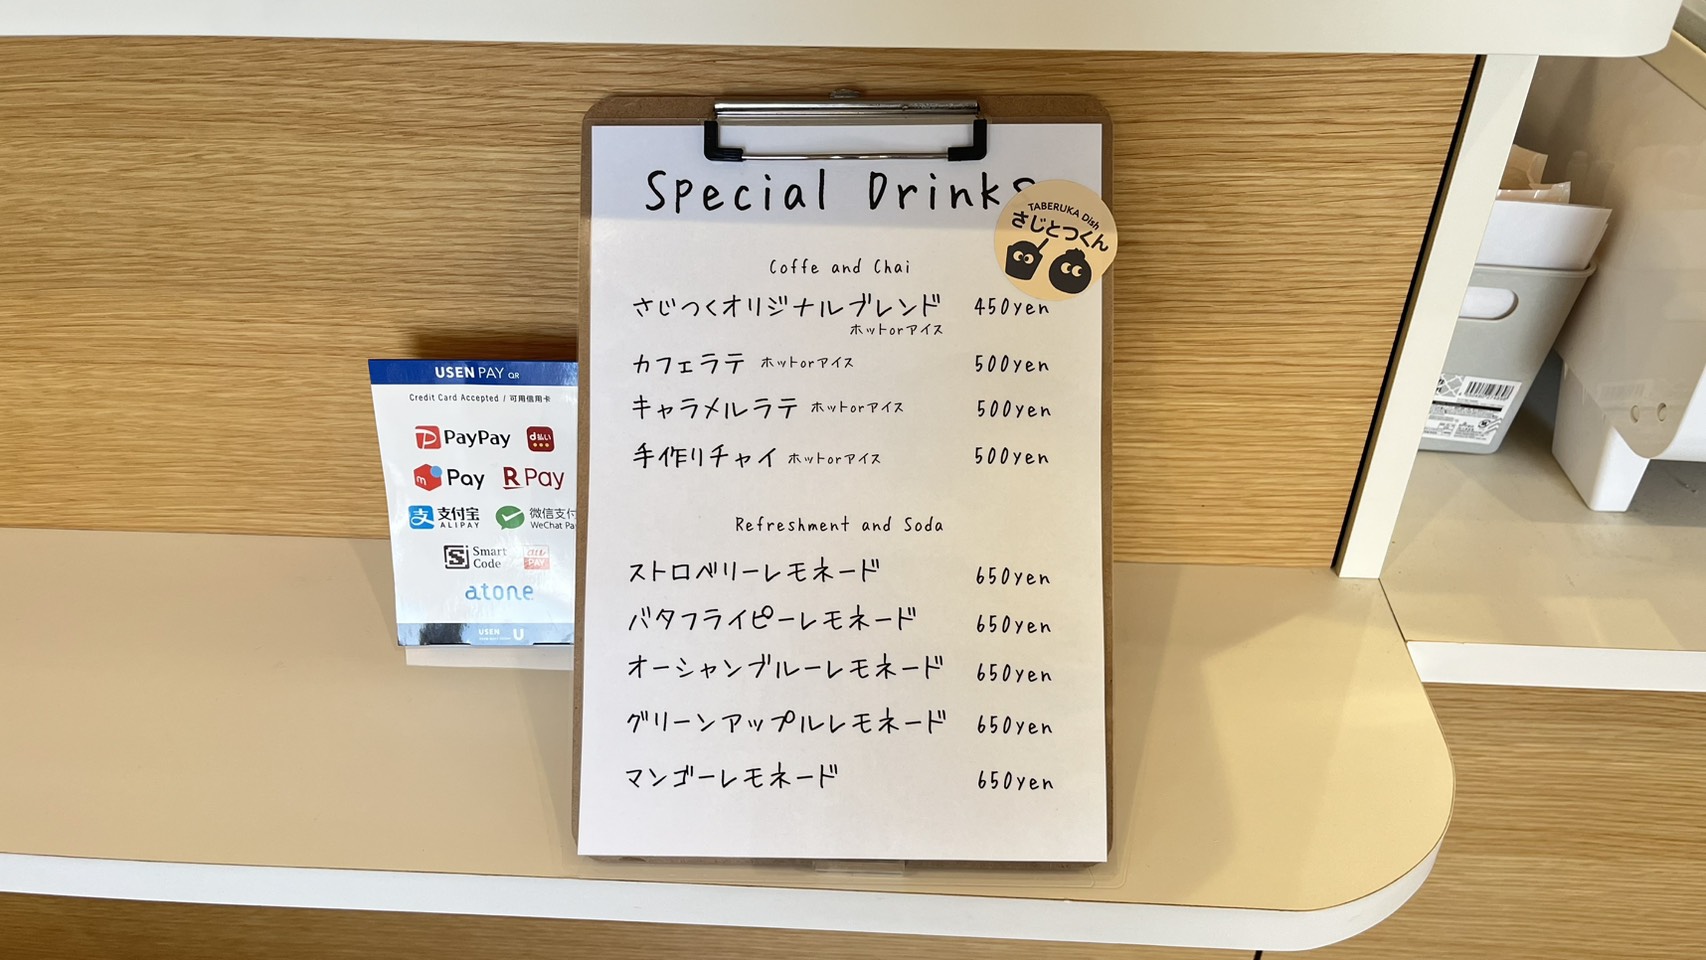 Special Drinks
TABERUKA Dish
さじとつくん
Coffe and Chai
さじつくオリジナルブレンド 450yen
ホットorアイス
カフェラテ ホットorアイス 500yen
キャラメルラテ ホットorアイス 500yen
手作りチャイ ホットorアイス 500yen
Refreshment and Soda
ストロベリーレモネード 650yen
バタフライピーレモネード 650yen
オーシャンブルーレモネード 650yen
グリーンアップルレモネード 650yen
マンゴーレモネード 650yen
USEN PAY QR
Credit Card Accepted / 可用信用卡
PayPay d払い
m Pay R Pay
支付宝 微信支付
ALIPAY WeChat Pa
Smart
Code
au
PAY
atone
USEN U